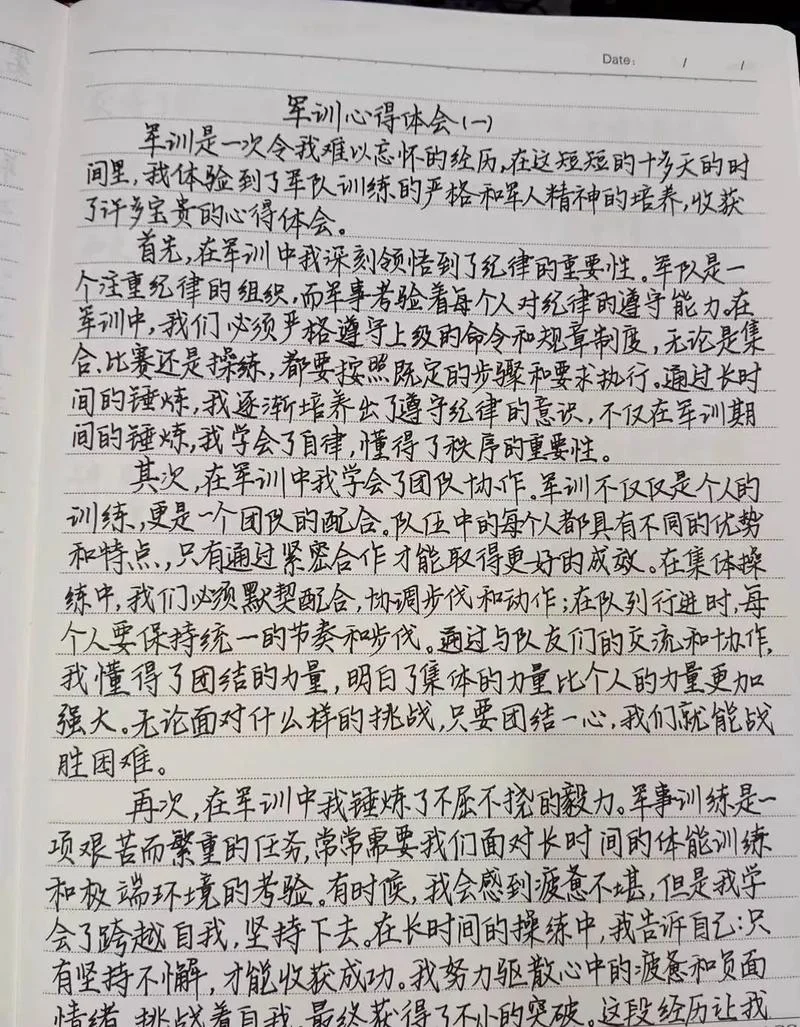 Date: / /
军训心得体会(一)
军训是一次令我难以忘怀的经历,在这短短的十多天的时
间里,我体验到了军队训练的严格和军人精神的培养,收获
了许多宝贵的心得体会。
首先,在军训中我深刻领悟到了纪律的重要性。军队是一
个注重纪律的组织,而军事考验着每个人对纪律的遵守能力。在
军训中,我们必须严格遵守上级的命令和规章制度,无论是集
合、比赛还是操练,都要按照既定的步骤和要求执行。通过长时
间的锤炼,我逐渐培养出了遵守纪律的意识,不仅在军训期
间的锤炼,我学会了自律,懂得了秩序的重要性。
其次,在军训中我学会了团队协作。军训不仅仅是个人的
训练,更是一个团队的配合。队伍中的每个人都具有不同的优势
和特点,,只有通过紧密合作才能取得更好的成效。在集体操
练中,我们必须默契配合,协调步伐和动作;在队列行进时,每
个人要保持统一的节奏和步伐。通过与队友们的交流和协作,
我懂得了团结的力量,明白了集体的力量比个人的力量更加
强大。无论面对什么样的挑战,只要团结一心,我们就能战
胜困难。
再次,在军训中我锤炼了不屈不挠的毅力。军事训练是一
项艰苦而繁重的任务,常常需要我们面对长时间的体能训练
和极端环境的考验。有时候,我会感到疲惫不堪,但是我学
会了跨越自我,坚持下去。在长时间的操练中,我告诉自己:只
有坚持不懈,才能收获成功。我努力驱散心中的疲惫和负面
情绪,挑战着自我,最终获得了不小的突破。这段经历让我